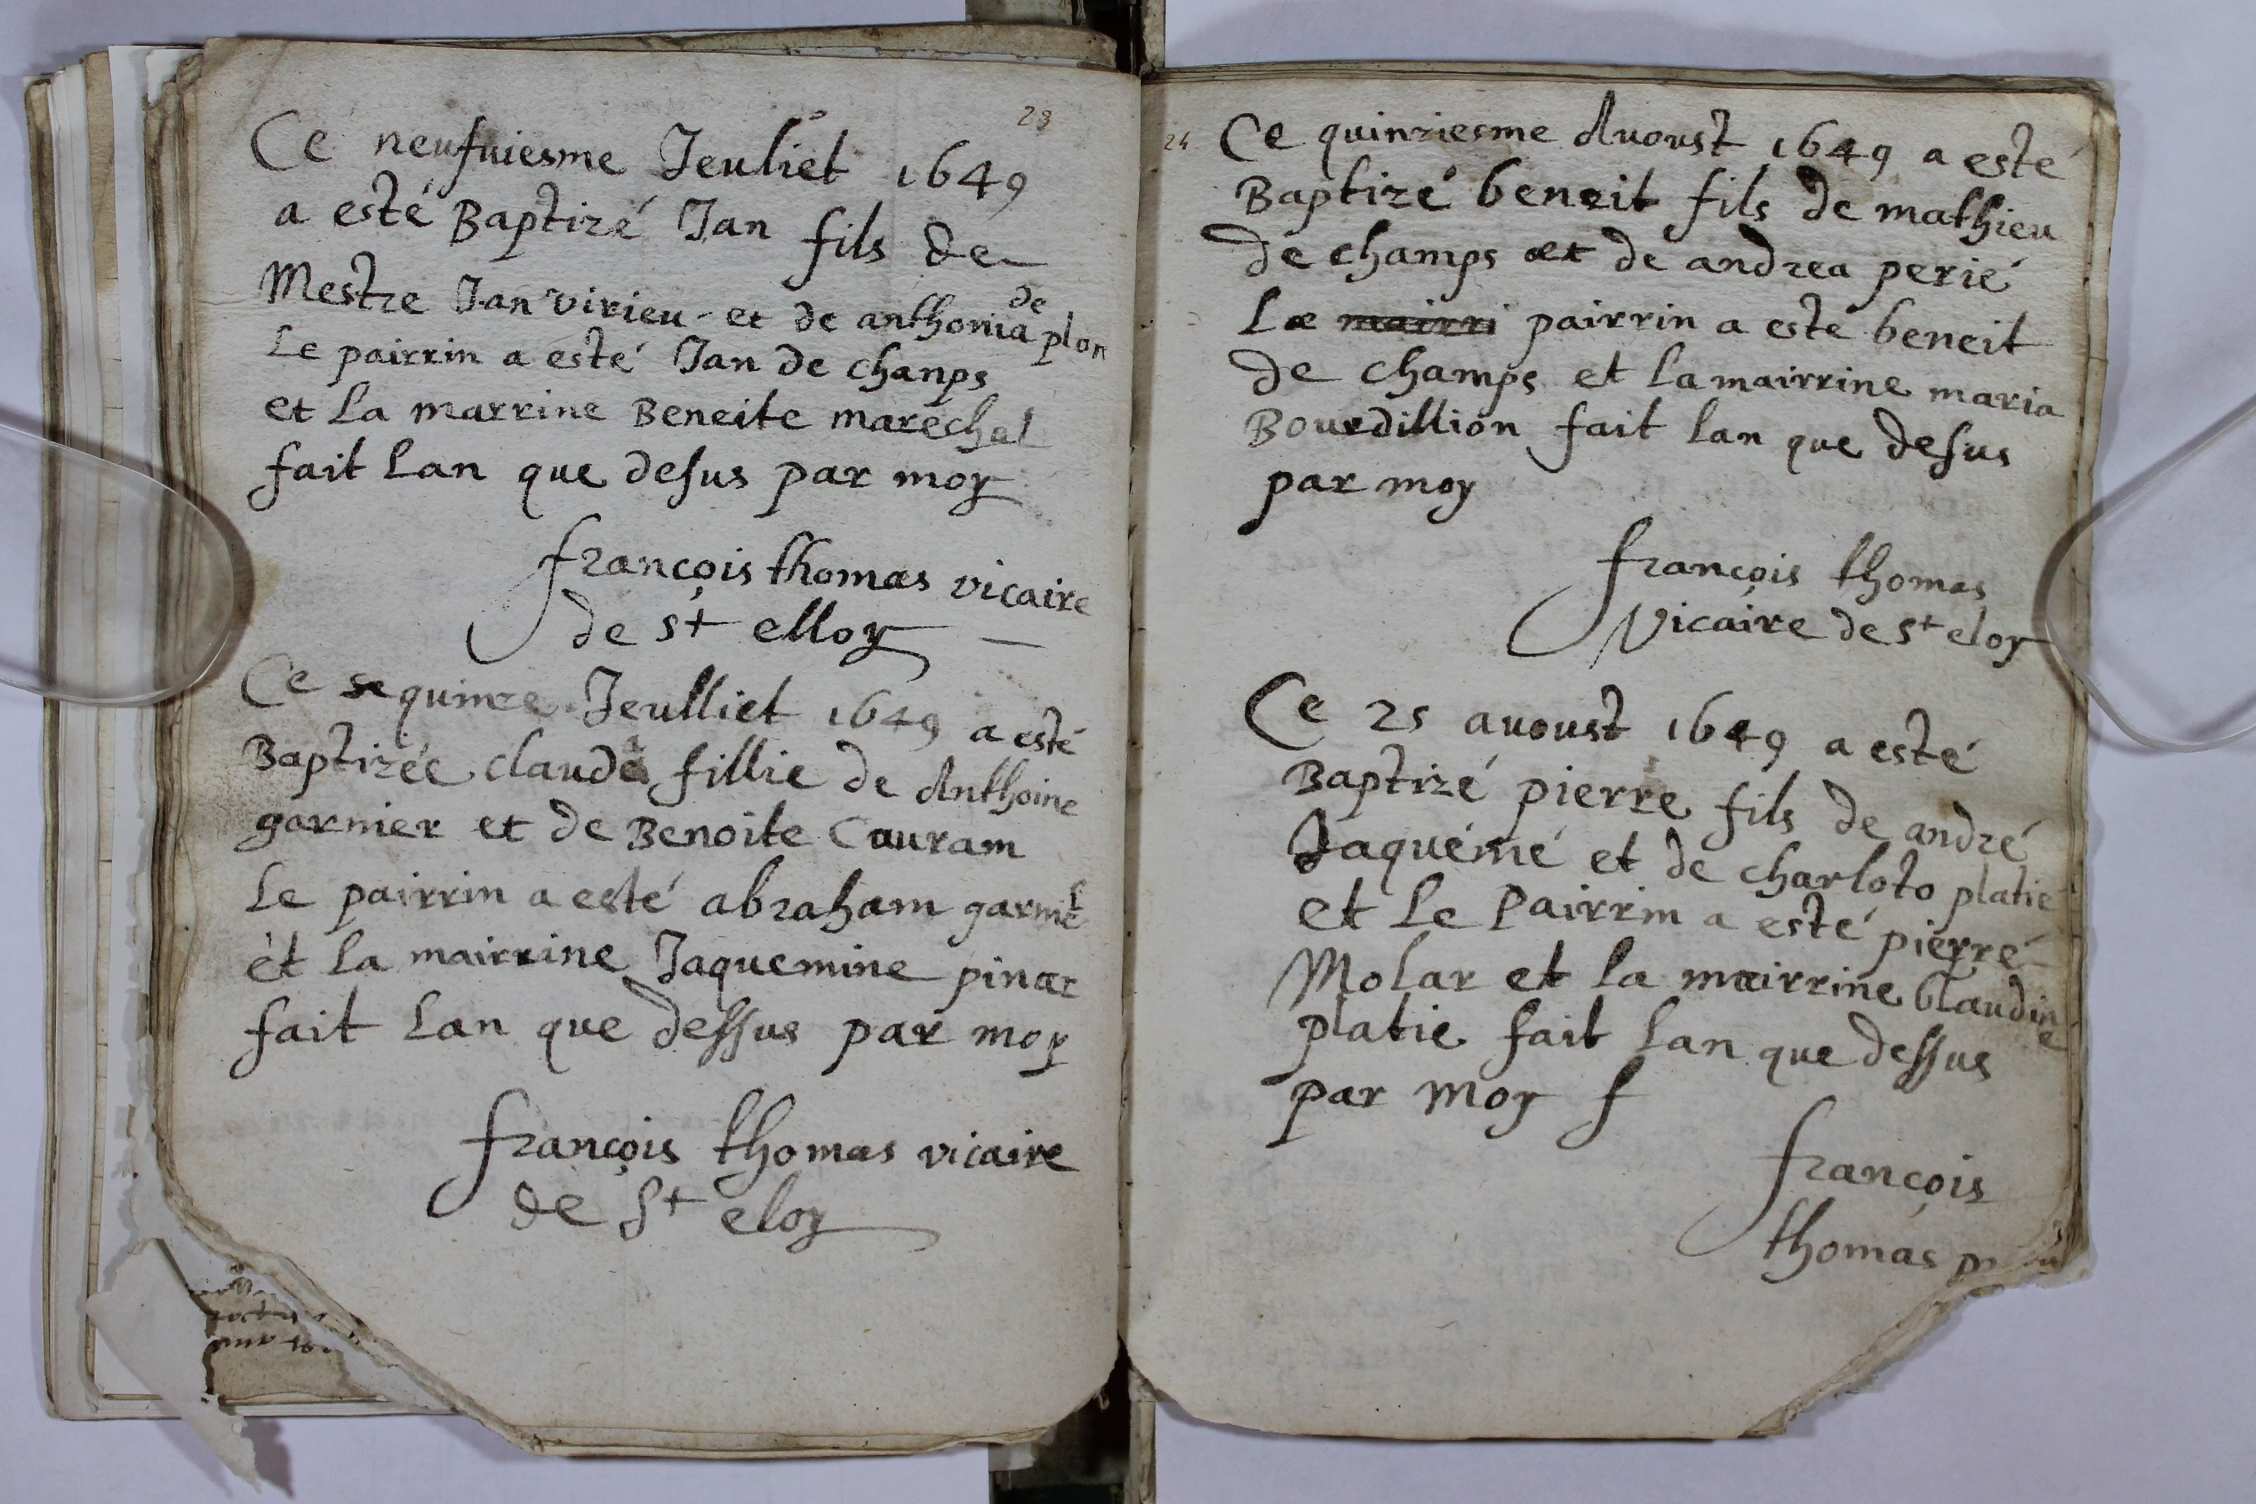 23
Ce neufuiesme Jeuliet 1649
a esté Baptizé Jan fils de
Mestre Jan virieu et de anthonia de plon
Le pairrin a esté Jan de chanps
et La marrine Beneite marechal
fait Lan que desus par moy
françois thomas vicaire
de St elloy
Ce se quinze Jeulliet 1649 a esté
Baptizée clauda fillie de Anthoine
garnier et de Benoite Cauram
Le pairrin a esté abraham garnié
èt La mairrine Jaquemine pinar
fait Lan que dessus par moy
françois thomas vicaire
de St eloy
24
Ce quinziesme Auoust 1649 a esté
Baptizé beneit fils de mathieu
de champs et de andrea perié
Le mairri pairrin a esté beneit
de champs et La mairrine maria
Bourdillion fait Lan que desus
par moy
françois thomas
Vicaire de St eloy
Ce 25 auoust 1649 a esté
Baptizé pierre fils de andré
Jaquémé et de charloto platie
et Le Pairrin a esté pierré
Molar et la mairrine Claudine
platie fait Lan que dessus
par moy f
françois
thomas